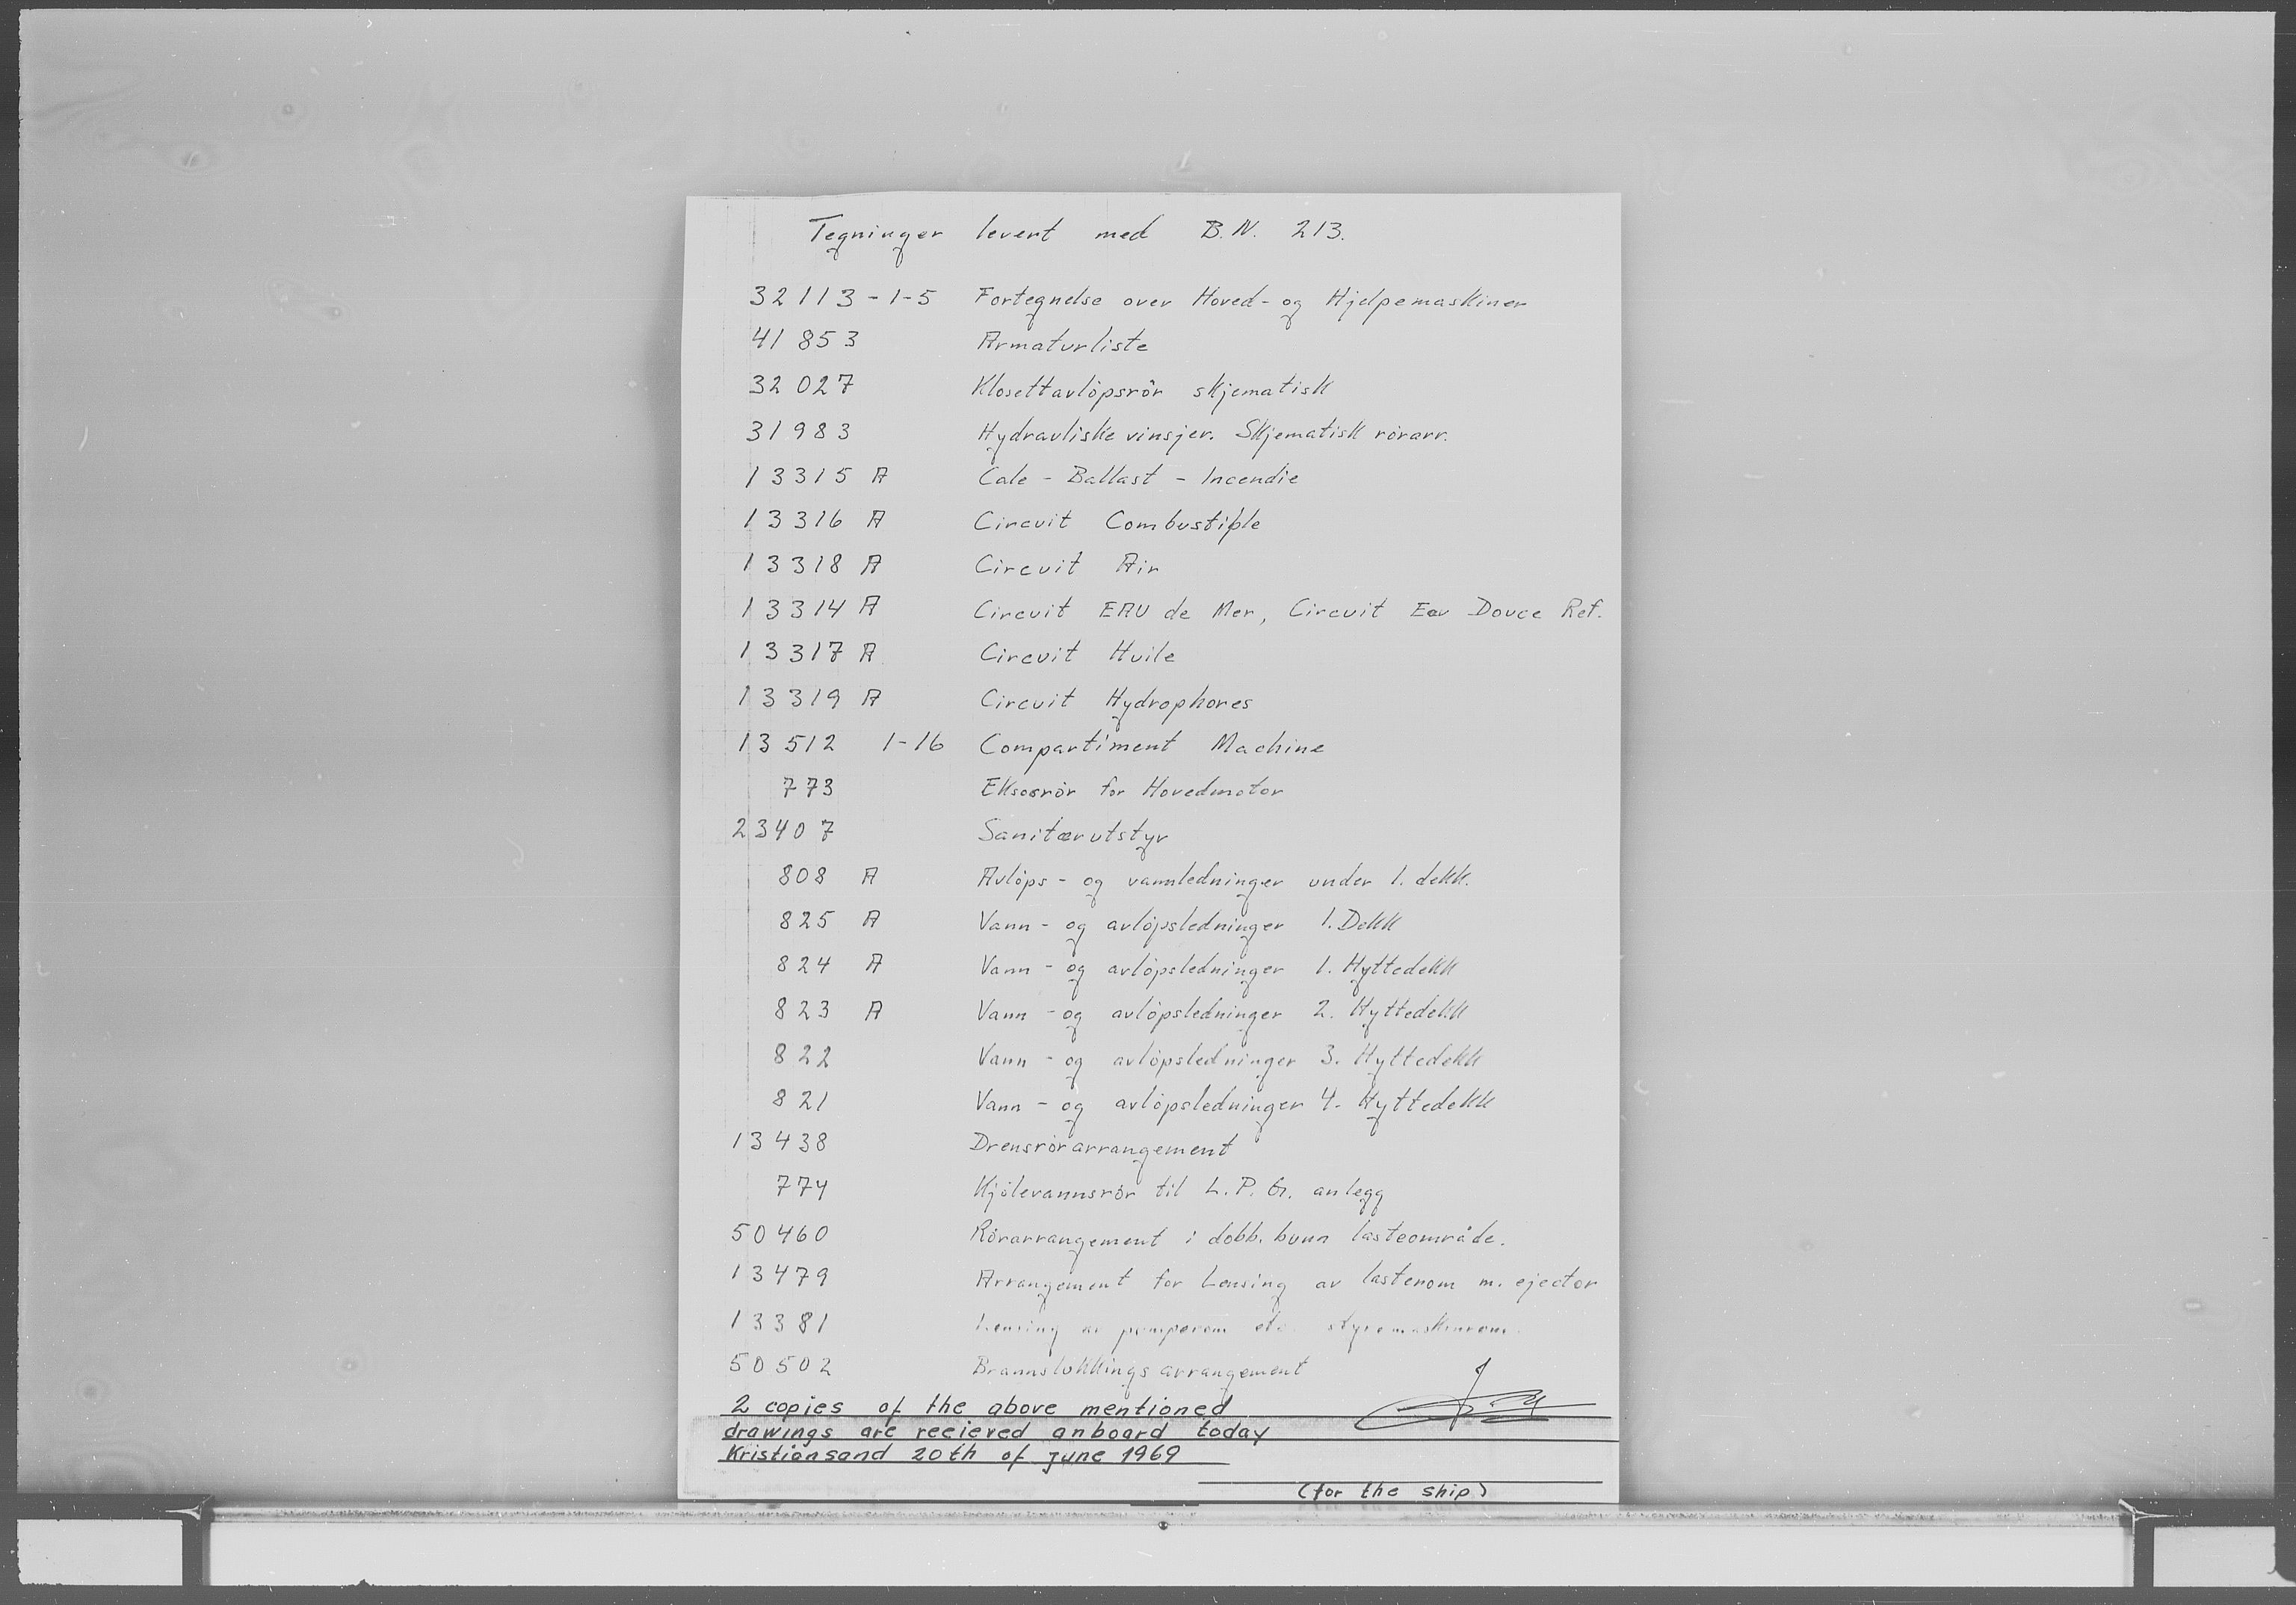 Tegninger levert med B.N. 213.
32113-1-5 Fortegnelse over Hoved- og Hjelpemaskiner
41853 Armaturliste
32027 Klosettavlöpsrör skjematisk
31983 Hydrauliske vinsjer. Skjematisk rörarr.
13315 A Cale - Ballast - Incendie
13316 A Circuit Combustible
13318 A Circuit Air
13314 A Circuit EAU de Mer, Circuit Eau Douce Ref.
13317 A Circuit Huile
13319 A Circuit Hydrophores
13512 1-16 Compartiment Machine
773 Eksosrör for Hovedmotor
23407 Sanitærutstyr
808 A Avlöps- og vannledninger under 1. dekk.
825 A Vann- og avlöpsledninger 1. Dekk
824 A Vann- og avlöpsledninger 1. Hyttedekk
823 A Vann- og avlöpsledninger 2. Hyttedekk
822 Vann- og avlöpsledninger 3. Hyttedekk
821 Vann- og avlöpsledninger 4. Hyttedekk
13438 Drensrörarrangement
774 Kjölevannsrör til L.P.G. anlegg
50460 Rörarrangement i dobb. bunn lasteområde.
13479 Arrangement for Lensing av lasterom m. ejector
13381 Lensing av pumperom styremaskinrom.
50502 Brannslukkingsarrangement
2 copies of the above mentioned
drawings are recieved onboard today
Kristiansand 20th of june 1969
(for the ship)